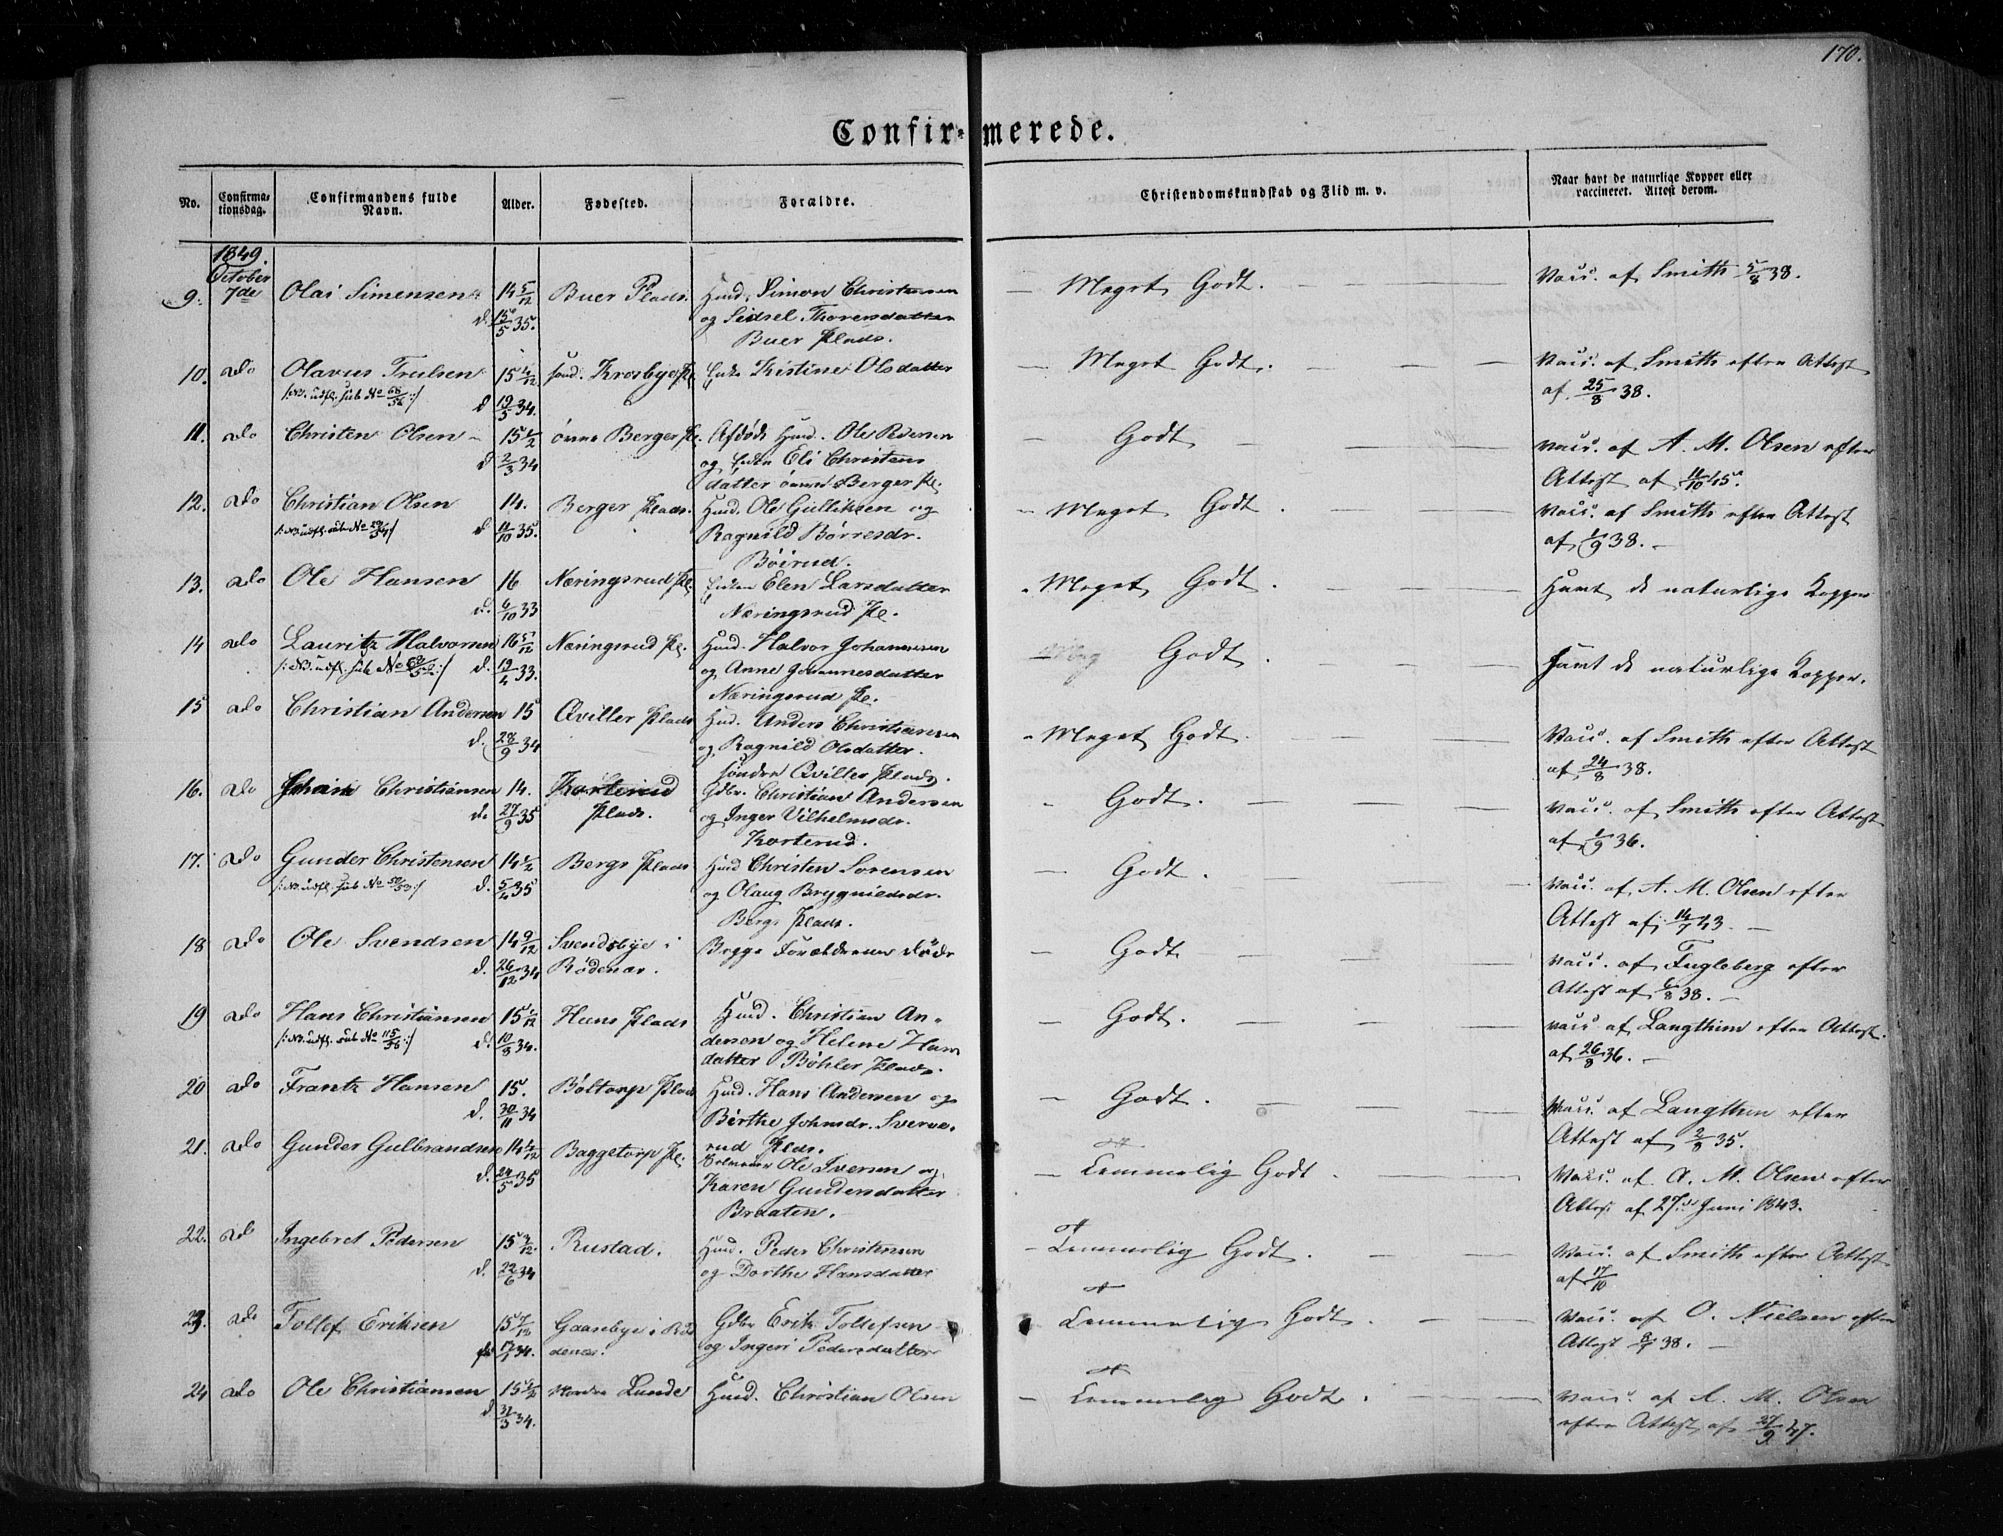 170.
Confirmerede.
No. Confirmationsdag. Confirmandens fulde Navn. Alder. Fødested. Forældre. Christendomskundskab og Flid m. v. Naar havt de naturlige Kopper eller vaccineret. Attest derom.
1849.
October
9. 7de Olai Simensen 14 5/12 Buer Plads. Huusd. Simon Christensen — Meget Godt. Vacc. af Smith 5/8 38.
d. 15/5 35. og Sidsel Thorersdatter
Buer Plads.
10. do Olavus Trulsen 15 Krosbye Pl. Enke Kistine Olsdatter — Meget Godt. Vacc. af Smith efter Attest
d 19/5 34. af 25/8 38.
11. do Christen Olsen 15 1/2 Berger Pl. Afdøde Huusd. Ole Pedersen — Godt Vacc. af A. M. Olsen efter
d 2/3 34 og Enke Eli Christens
datter Berger Pl. Attest af
12. do Christian Olsen 14. Berger Plads. Huusd. Ole Gulliksen og — Meget Godt Vacc. af Smith efter Attest
d 11/10 35. Ragnild Børresdr. af 1/9 38.
Böirud.
13. do Ole Hansen 16 Næringsrud Pl. Enken Elen Larsdatter — Meget Godt. Havt de naturlige Kopper
d. 6/10 33 Næringsrud Pl.
14 do Lauritz Halvorsen 16 5/12 Næringsrud Pl. Huusd. Halvor Johannesen Godt. Havt de naturlige Kopper.
d. 19/4 33. og Anne Johannesdatter
Næringsrud Pl.
15 do Christian Andersen 15 Qviller Plads Huusd. Anders Christiansen — Meget Godt. Vacc. af Smith efter Attest
d. 28/9 34 og Ragnild Olsdatter. af 24/8 38.
søndre Qviller Plads.
16. do Johan Christiansen 14. Korterud Gdbr. Christian Andersen Godt. Vacc. af Smith efter Attest
d. 27/9 35 Plads. og Inger Vilhelmsdr. af 1/9 36.
Korterud.
17. do Gunder Christensen 14 1/2 Bergs Plads Huusd Christen Sørensen — Godt. Vacc. af A. M. Olsen efter
d. 5/4 35 og Olaug Brygnildsdr. Attest af 14/7 43.
Bergs Plads.
18 do Ole Svendsen 14 9/12 Svendsbye i Begge Forældrene døde — Godt Vacc. af Fugleberg efter
d. 26/12 34 Rødenæs. Attest af 6/8 38.
19 do Hans Christiansen 15 Huns Plads Huusd. Christian An- Godt. Vacc af Langthim efter Attest.
d. 10/8 34. dersen og Helene Hans af 26/8 36.
datter Böhler Plads.
20 do Frantz Hansen 15. Böltorp Plads Huusd. Hans Andersen og — Godt. Vacc. af Langthim efter
d. 30/11 34 Birthe Johnsdr. Sverve- Attest af 2/8 35.
rud Plds.
21. do Gunder Gulbrandsen 14 4/12 Baggetorp Pl. Ole Iversen og — Temmelig Godt. Vacc. af A. M. Olsen efter
d. 24/5 35 Karen Gundersdatter Attest af 27de Juni 1843.
Braaten.
22. do Ingebret Pedersen 15 Rustad. Huusd. Peder Christensen — Temmelig Godt. Vacc. af Smith efter Attest
d. 22/6 34 og Dorthe Hansdatter af 17/10
23. do Tollef Eriksen 15 7/12 Gaasebye i Rø- Gdbr Erik Tollefsen Temmelig Godt. Vacc. af O. Nielsen efter
34. denæs. og Ingeri Pedersdatter Attest 38.
24 do Ole Christiansen 15 1/2 Nordre Lunde Huusd. Christian Olsen — Temmelig Godt. Vacc. af A. M. Olsen
d 31/3 34. efter Attest af 27/9 47.